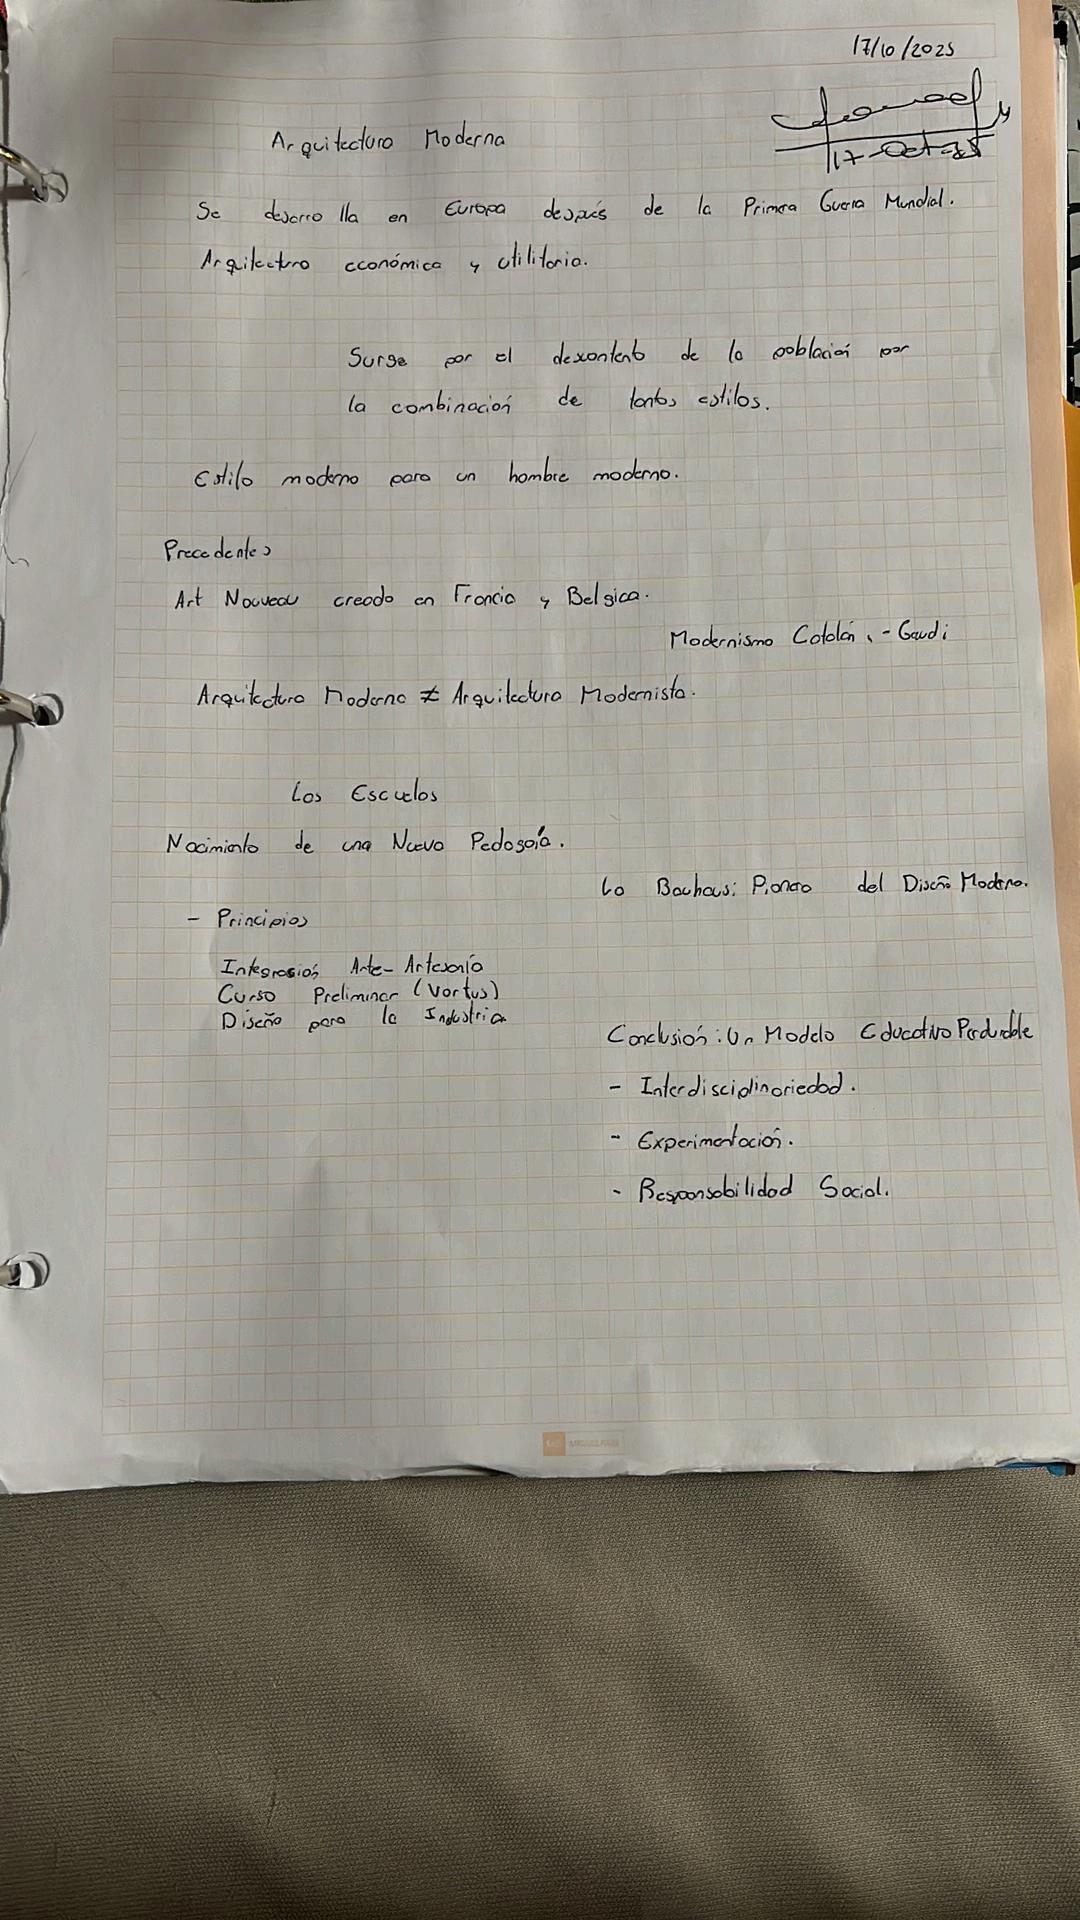 17/10/2025
17-Oct-25
Arquitectura Moderna
Se desarrolla en Europa después de la Primera Guerra Mundial.
Arquitectura económica y utilitaria.
Surge por el descontento de la población por
la combinación de tantos estilos.
Estilo moderno para un hombre moderno.
Precedentes
Art Nouveau creado en Francia y Belgica.
Modernismo Catalán. - Gaudi
Arquitectura Moderna ≠ Arquitectura Modernista.
Las Escuelas
Nacimiento de una Nueva Pedagoía.
La Bauhaus: Pionero del Diseño Moderno.
- Principios
Integrasión Arte-Artesanía
Curso Preliminar (Vortus)
Diseño para la Industria
Conclusión: Un Modelo Educativo Perdurable
- Interdisciplinariedad.
- Experimentación.
- Responsabilidad Social.